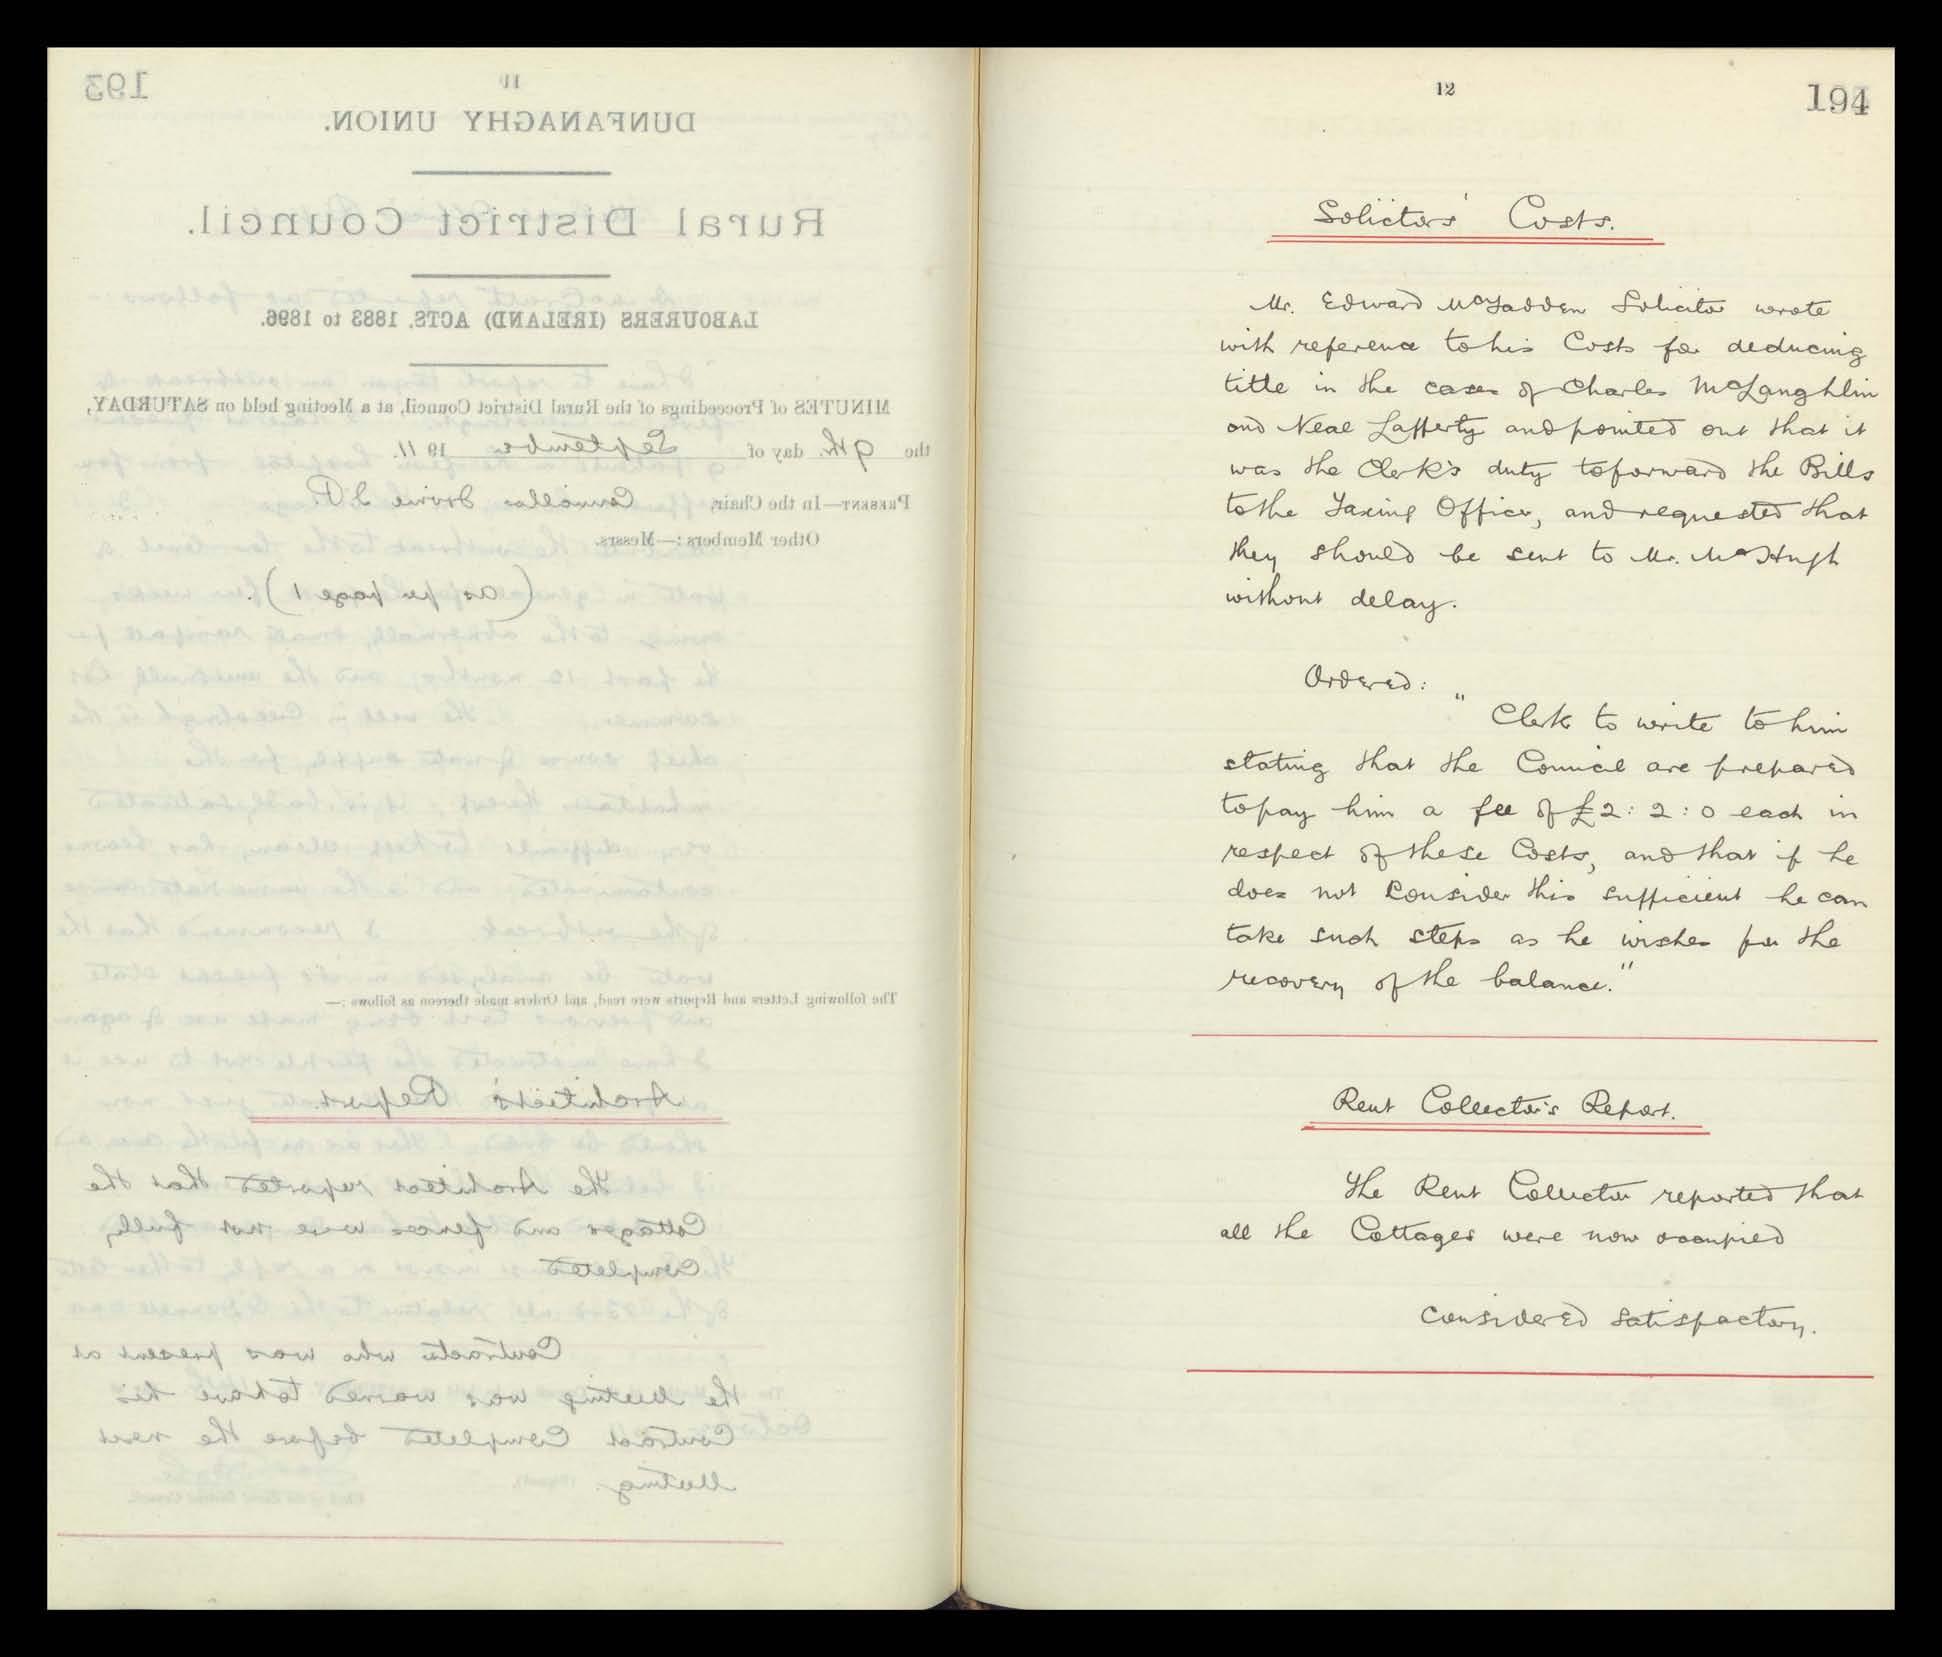 193
11
DUNFANAGHY UNION.
Rural District Council.
LABOURERS (IRELAND) ACTS, 1883 to 1896.
MINUTES of Proceedings of the Rural District Council, at a Meeting held on SATURDAY,
the 9th. day of September 1911.
PRESENT—In the Chair, Councillor Irvine J.P.
Other Members:—Messrs.
(as per page 1).
The following Letters and Reports were read, and Orders made thereon as follows:—
Architect's Report.
The Architect reported that the
Cottages and fences were not fully
Completed
Contractor who was present at
the Meeting was warned to have his
Contract Completed before the next
Meeting.
12
194
Solicitors' Costs.
Mr. Edward McFadden Solicitor wrote
with reference to his Costs for deducing
title in the cases of Charles McLaughlin
and Neal Lafferty and pointed out that it
was the Clerk's duty to forward the Bills
to the Taxing Officer, and requested that
they should be sent to Mr. McHugh
without delay.
Ordered:
"Clerk to write to him
stating that the Council are prepared
to pay him a fee of £2:2:0 each in
respect of these Costs, and that if he
does not Consider this sufficient he can
take such steps as he wishes for the
recovery of the balance."
Rent Collector's Report.
The Rent Collector reported that
all the Cottages were now occupied
Considered satisfactory.